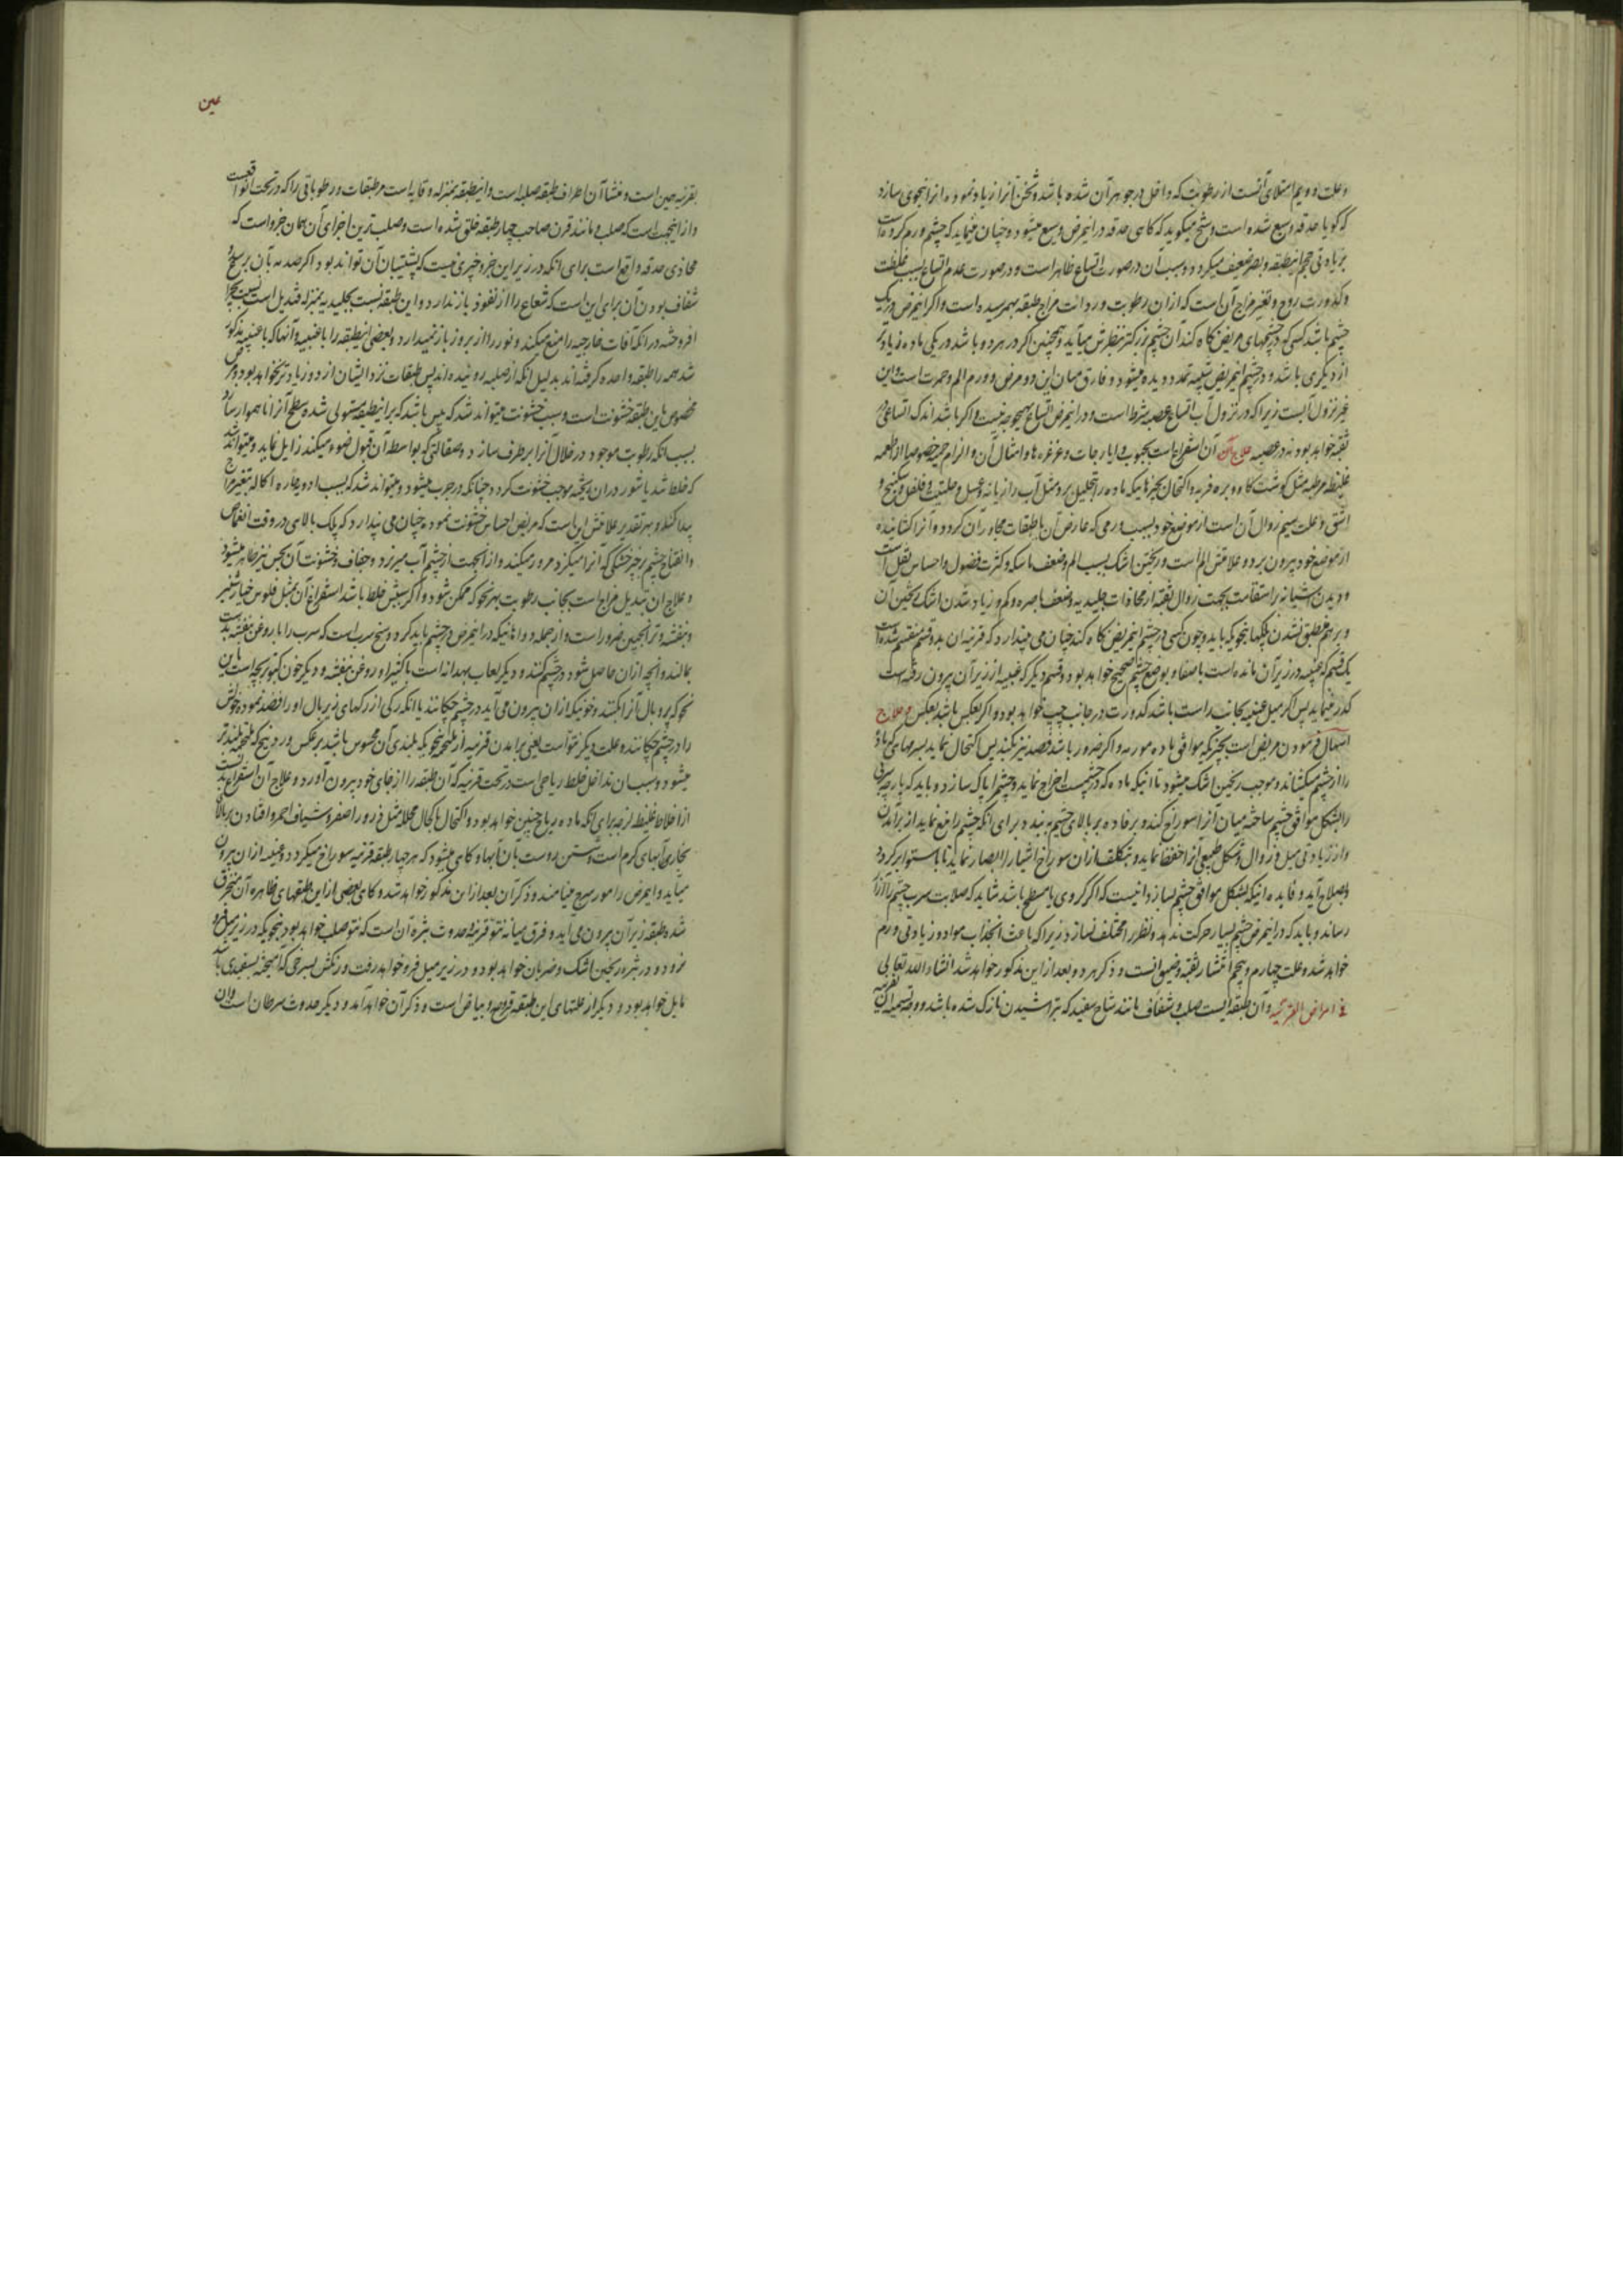 وعلت دویم امتلای آنست از رطوبت که داخل در جوهر آن شده باشد و ثخن آنرا زیاد نموده آنرا بنحوی سازد
که گویا حدقه وسیع شده است و شیخ میگوید که گاهی حدقه در اینمرض وسیع میشود و چنان مینماید که چشم ورم کرده است
بزیادتی حجم اینطبقه و بصر ضعیف میگردد و سبب آن در صورت اتساع ظاهر است و در صورت عدم اتساع بسبب غلظت
و کدورت روح و تغیر مزاج آن است که از آن رطوبت و رداءت مزاج طبقه بهمرسیده است و اگر اینمرض در یک
چشم باشد کسی که در چشمهای مریض نگاه کند آن چشم بزرگتر بنظرش میآید و همچنین اگر در هر دو باشد در یکی ماده زیادتر
از دیگری باشد و در چشم اینمریض تمدد دیده میشود و فارق میان این دو مرض و ورم الم و حمرت است و این
غیر نزول آبست زیرا که در نزول آب اتساع عصبه شرط است و در اینمرض اتساع بهیچوجه نیست و اگر باشد اندک اتساعی در
ثقبه خواهد بود نه در عصبه علاج آن استفراغ است بحبوب و ایارجات و غرغره ها و امثال آن و الزام حمیه خصوصا از اطعمه
غلیظه مرطبه مثل گوشت گاو و بره فربه و اکتحال بچیزهاییکه ماده را تحلیل برد مثل آب رازیانه و عسل و حلتیت و فلفل و سکبینج و
اشق وعلت سیم زوال آن است از موضع خود بسبب ورمی که عارض آن یا طبقات مجاور آن گردد و آنرا کشانیده
از موضع خود بیرون برد و علامتش الم است و ریختن اشک بسبب الم و ضعف ماسکه و کثرت فضول و احساس ثقل است
و دیدن اشیا نه بر استقامت بجهت زوال ثقبه از محاذات جلیدیه و ضعف باصره و کم و زیاد شدن اشک
یک قسم که عنبیه در زیر آن مانده است باصفا و بوضع چشم صحیح خواهد بود و قسم دیگر که عنبیه از زیر آن بیرون رفته است
کدر مینماید پس اگر میل عنبیه بجانب راست باشد کدورت در جانب چپ خواهد بود و اگر بعکس باشد بعکس و علاج
اسهال فرمودن مریض است بچیزیکه موافق ماده مورمه و اگر ضرور باشد فصد نیز بکنند پس اکتحال نماید بسرمهای که ماده
را از چشم میکشاند و موجب ریختن اشک میشود تا اینکه ماده که در چشمست اخراج نماید و چشم را پاک سازد و باید که پارچه سربی
را بشکل موافق چشم ساخته میان آنرا سوراخ کند و بر فاده بر بالای چشم به بندد برای آنکه چشم را منع نماید از برآمدن
و از زیادتی میل و زوال و شکل طبیعی آنرا حفظ نماید و بتکلف از آن سوراخ اشیا را ابصار نماید تا باستوا برگردد
و بصلاح آید و فایده اینکه بشکل موافق چشم بسازد اینست که اگر کروی یا مسطح باشد شاید که صلابت سرب چشم را آزار
رساند و باید که در اینمرض چشم بسیار حرکت ندهد و نظر را مختلف نسازد زیرا که باعث انجذاب مواد و زیادتی ورم
خواهد شد و علت چهارم و پنجم انتشار ثقبه و ضیق آنست و ذکر هر دو بعد از این مذکور خواهد شد انشاء الله تعالی
فی امراض القرنیه و آن طبقه ایست صلب و شفاف مانند شاخ سفید که بتراشیدن نازک شده باشد و وجه تسمیه آن
عین
بقرنیه همین است و منشأ آن اطراف طبقه صلبه است و اینطبقه بمنزله وقایه است مر طبقات و رطوباتی را که در تحت او واقعست
و از اینجهت است که صلب و مانند قرن صاحب چهار طبقه خلق شده است و صلب ترین اجزای آن همان جزو است که
محاذی حدقه واقع است برای آنکه در زیر این جزو چیزی نیست که پشتیبان آن تواند بود اگر صدمه بآن برسد و
شفاف بودن آن برای این است که شعاع را از نفوذ باز ندارد و این طبقه نسبت بجلیدیه بمنزله قندیل است نسبت بچراغ
افروخته در آنکه آفات خارجیه را منع میکند و نور را از بروز باز نمیدارد و بعضی اینطبقه را با عنبیه و آنها که با عنبیه مذکور
شد همه را طبقه واحده گرفته اند بدلیل آنکه از صلبیه روئیده اند پس طبقات نزد ایشان از دو زیادتر نخواهد بود و مرض
مخصوص باین طبقه خشونت است و سبب خشونت میتواند شد که یبس باشد که بر اینطبقه مستولی شده سطح آنرا ناهموار سازد
بسبب آنکه رطوبت موجود در خلال آنرا برطرف سازد و صقالتی که بواسطه آن قبول ضوء میکند زایل نماید و میتواند شد
که خلط شدید باشور در آن ریخته موجب خشونت گردد چنانکه در جرب میشود و میتواند شد که بسبب ادویه حاره اکاله تغیر مزاج
پیدا کند و بهر تقدیر علامتش این است که مریض احساس خشونت نموده چنان می پندارد که پلک بالای در وقت انغماض
و انفتاح چشم بر چیز خشکی که آنرا میگزد مرور میکند و از آنجهت از چشم آب میریزد و جفاف و خشونت آن بحس نیز ظاهر میشود
و علاج آن تبدیل مزاج است بجانب رطوبت بهر نحو که ممکن شود و اگر سببش خلط باشد استفراغ آن بمثل فلوس خیار شنبر
و بنفشه و ترنجبین ضرور است و از جمله دواهائیکه در اینمرض در چشم باید کرد وسخ سرب است که سرب را با روغن بنفشه بدست
بمالند و آنچه از آن حاصل شود در چشم کنند و دیگر لعاب بهدانه است با کتیرا و روغن بنفشه و دیگر خون کبوتر بچه است باین
نحو که پر و بال آنرا بکنند و خونیکه از آن بیرون می آید در چشم چکانند یا آنکه رگی از رگهای زیر بال او را فصد نموده خونش
را در چشم چکانند و علت دیگر نتو است یعنی برآمدن قرنیه از ملتحمه بنحویکه بلندی آن محسوس باشد بر عکس وردینج که ملتحمه بلندتر
میشود و سبب آن تداخل خلط ریاحی است در تحت قرنیه که آن طبقه را از جای خود بیرون آورد و علاج آن استفراغ بدنست
از اخلاط غلیظ لزجه برای آنکه ماده ریاح چنین خواهد بود و اکتحال باکحال محلله مثل ذرور اصفر و شیاف احمر و افتادن بر بالای
بخار آبهای گرم است و شستن روست بآن آبها و گاهی میشود که هر چهار طبقه قرنیه سوراخ میگردد و عنبیه از آن بیرون
میآید و اینمرض را مورسرج مینامند و ذکر آن بعد از این مذکور خواهد شد و گاهی بعضی از این طبقهای ظاهره آن منخرق
شده طبقه زیر آن بیرون می آید و فرق میانه نتو قرنیه و حدوث بثره آن است که نتو صلب خواهد بود بنحویکه در زیر میل فرو
نرود و در بثره ریختن اشک و ضربان خواهد بود و در زیر میل فرو خواهد رفت و رنگش بسرخی که آمیخته بسفیدی باشد
مایل خواهد بود و دیگر از علتهای این طبقه قروح و بیاض است و ذکر آن خواهد آمد و دیگر حدوث سرطان است و آن